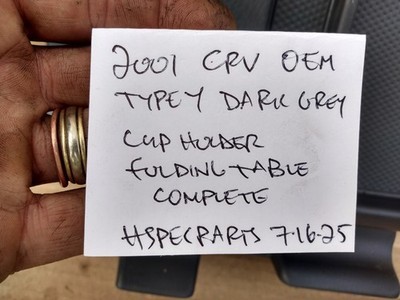 2001 CRV OEM
TYPE Y DARK GREY
CUP HOLDER
FOLDING TABLE
COMPLETE
HSPECPARTS 7-16-25